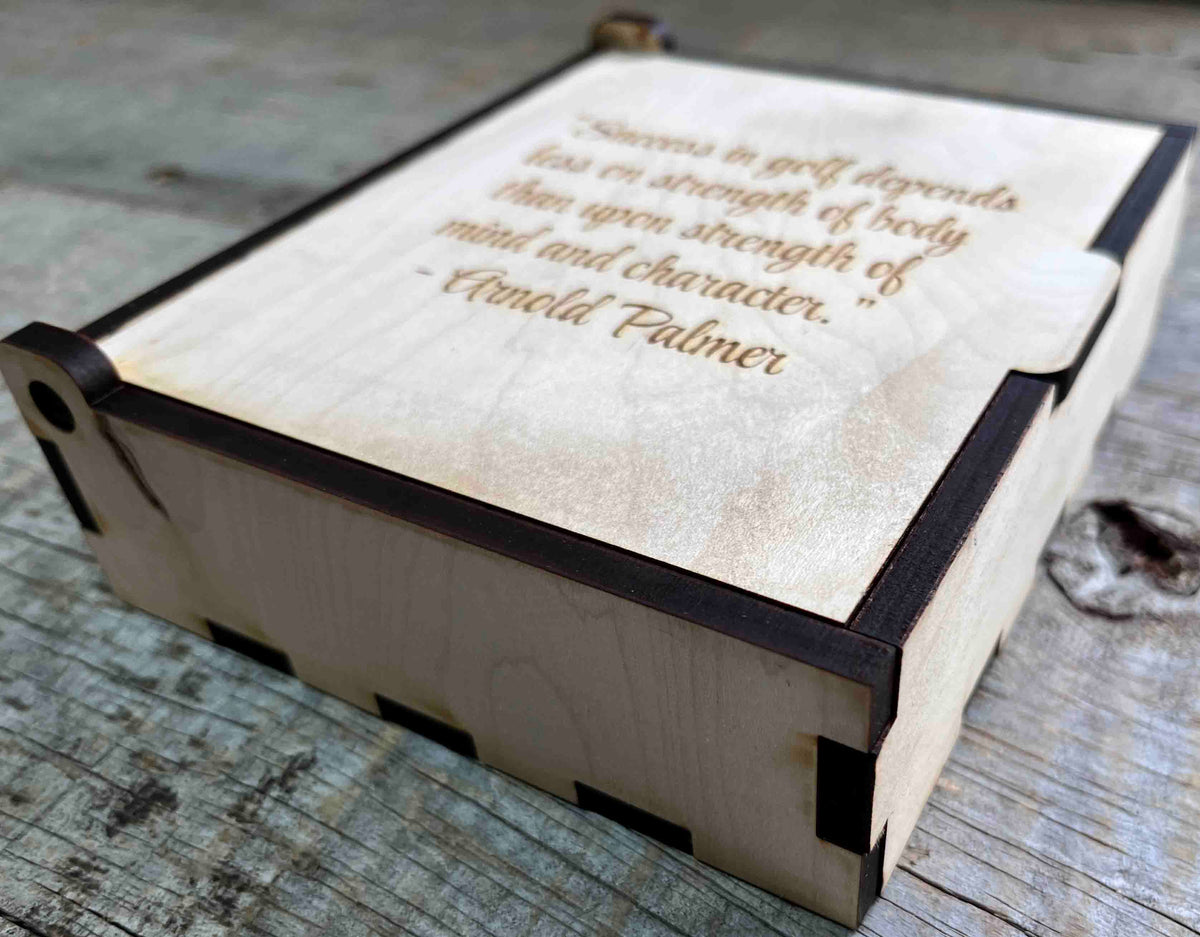 "Success in golf depends
less on strength of body
than upon strength of
mind and character."
- Arnold Palmer